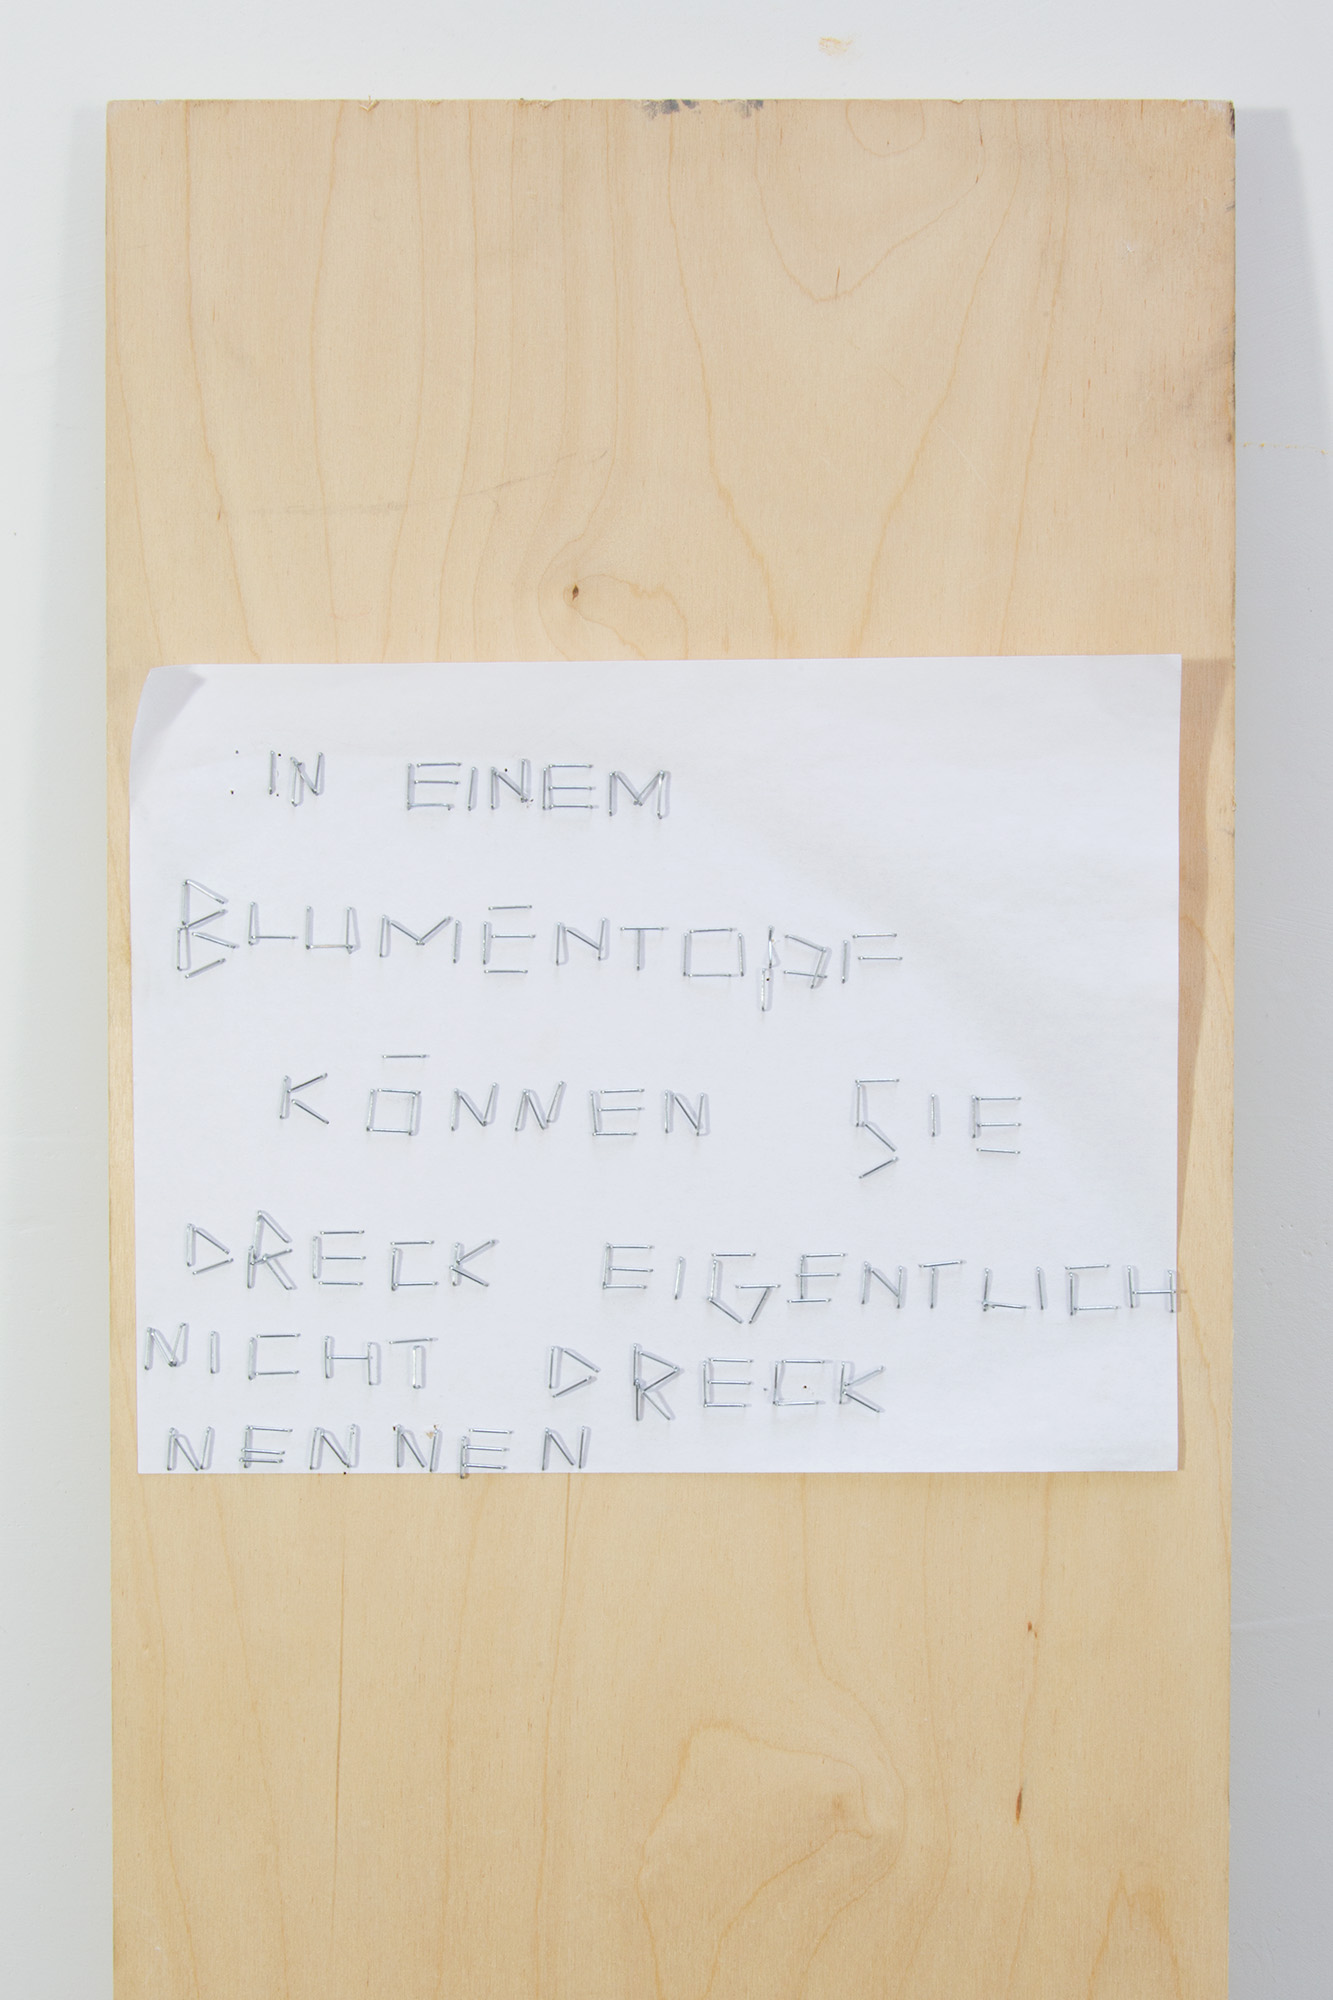 IN EINEM
BLUMENTOPF
KÖNNEN SIE
DRECK EIGENTLICH
NICHT DRECK
NENNEN